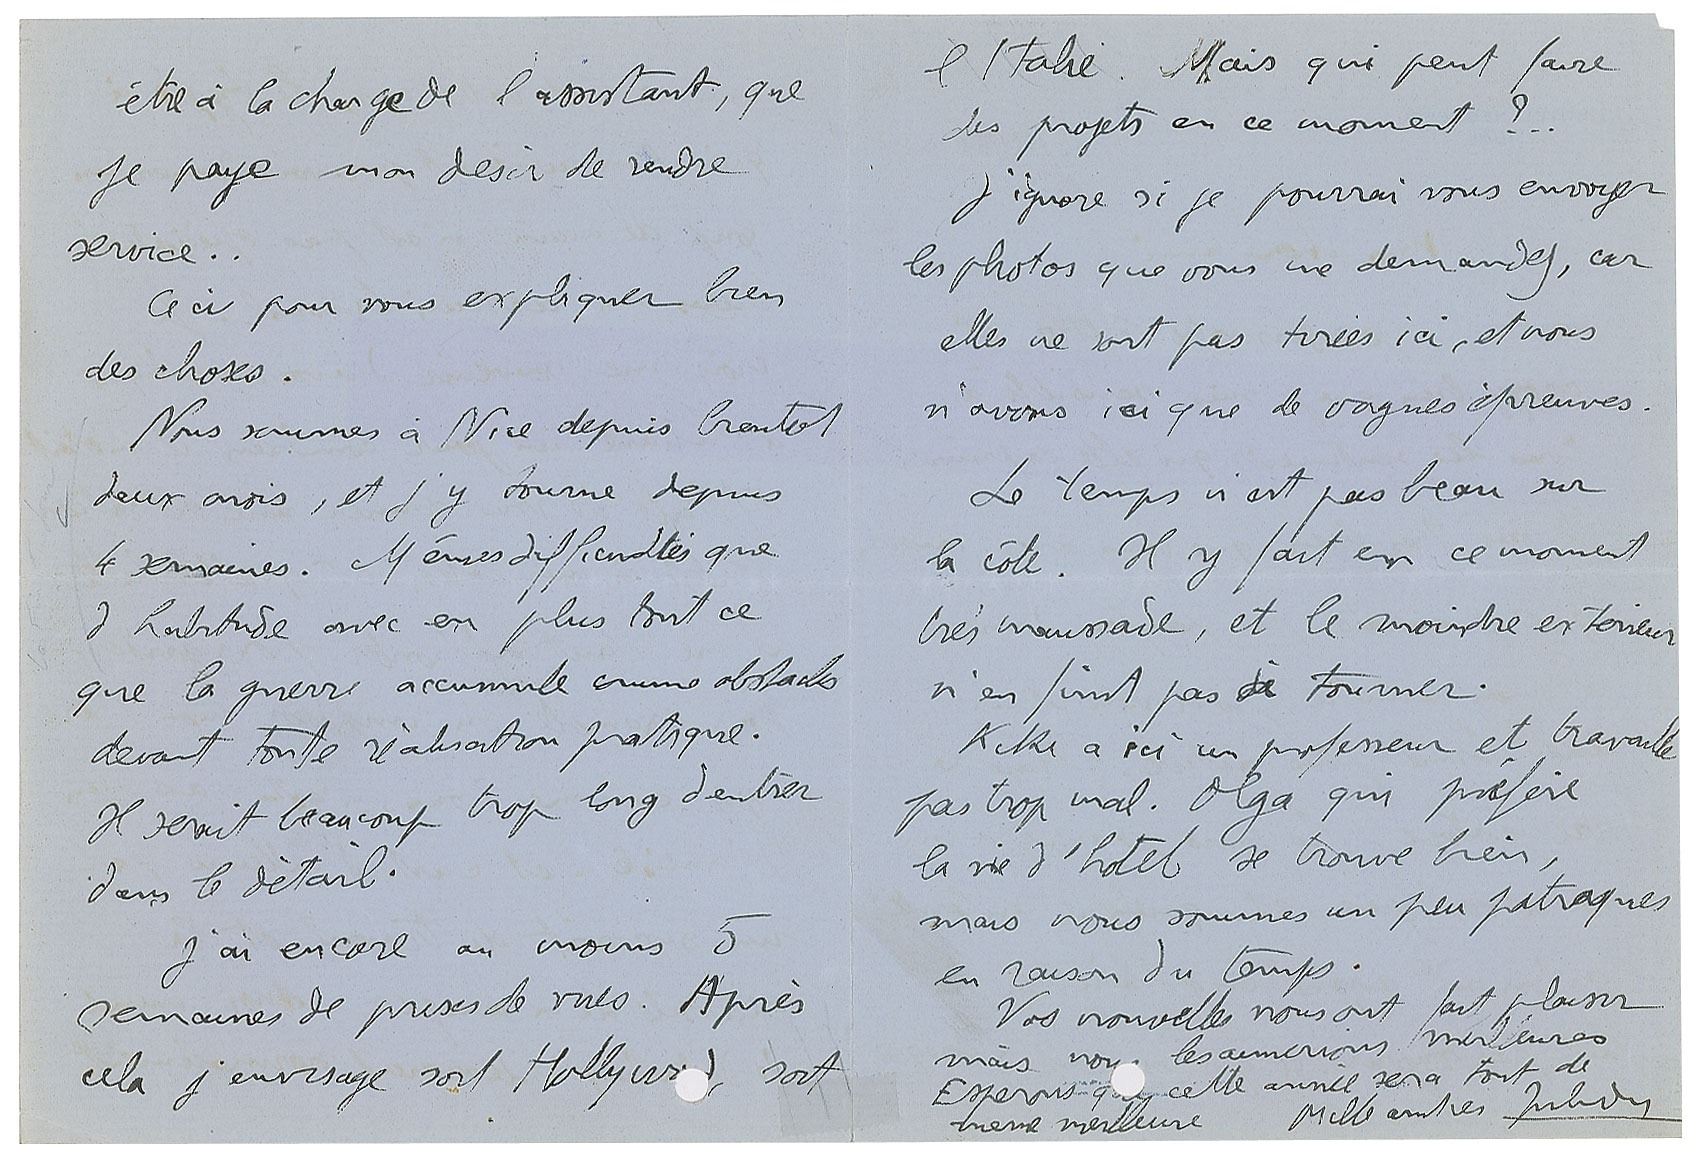 être à la charge de l'assistant, que
je paye mon désir de rendre
service..
Ceci pour vous expliquer bien
des choses.
Nous sommes à Nice depuis bientot
deux mois, et j'y tourne depuis
4 semaines. Mêmes difficultés que
d'habitude avec en plus tout ce
que la guerre accumule comme obstacles
devant toute réalisation pratique.
Il serait beaucoup trop long d'entrer
dans le détail.
J'ai encore au moins 5
semaines de prises de vues. Après
cela j'envisage soit Hollywood, soit
l'Italie. Mais qui peut faire
des projets en ce moment ?..
J'ignore si je pourrai vous envoyer
les photos que vous me demandez, car
elles ne sont pas tirées ici, et nous
n'avons ici que de vagues épreuves.
Le temps n'est pas beau sur
la côte. Il y fait en ce moment
très maussade, et le moindre extérieur
n'en finit pas à tourner.
Kiki a ici un professeur et travaille
pas trop mal. Olga qui préfère
la vie d'hotel se trouve bien,
mais nous sommes un peu patraques
en raison du temps.
Vos nouvelles nous ont fait plaisir
mais nous les aimerions meilleures
Esperons que cette année sera tout de
meme meilleure Mille amitiés